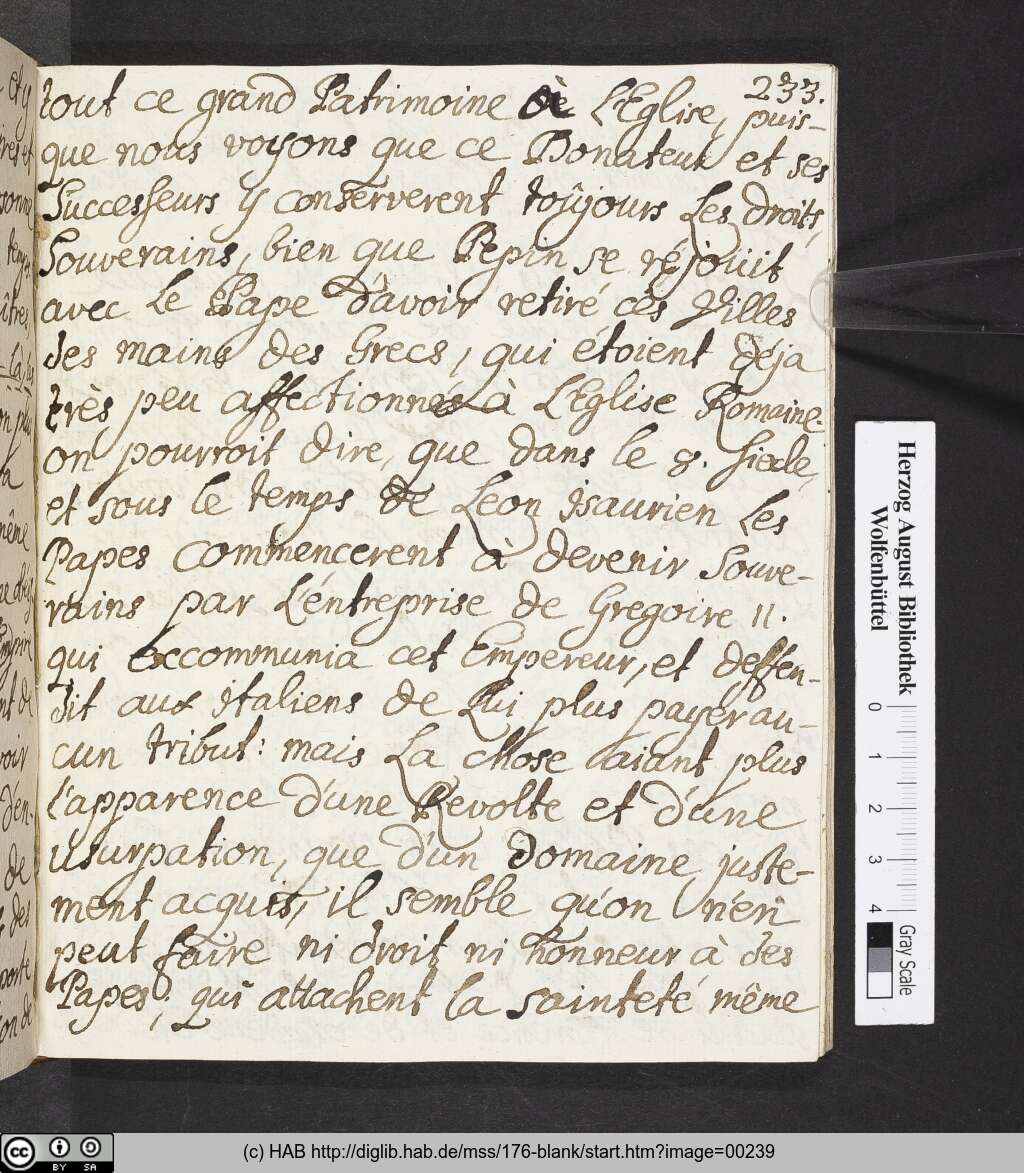 233.
tout ce grand Patrimoine de L'Eglise, puis-
que nous voyons que ce Donateur et ses
Successeurs y conserverent toûjours Les droits
Souverains, bien que Pepin se réjouit
avec Le Pape d'avoir retiré ces Villes
des mains des Grecs, qui étoient déja
très peu affectionnés à L'Eglise Romaine.
on pourroit dire, que dans le 8. Siecle,
et sous le temps de Leon Isaurien Les
Papes commencerent à devenir Souve-
rains par L'entreprise de Gregoire II.
qui Excommunia cet Empereur, et deffen-
dit aux Italiens de Lui plus payer au-
cun tribut: mais La chose aiant plus
l'apparence d'une Revolte et d'une
usurpation, que d'un Domaine juste-
ment acquis, il semble qu'on n'en
peut faire ni droit ni honneur à des
Papes, qui attachent la sainteté même
Herzog August Bibliothek
Wolfenbüttel
0 1 2 3 4
Gray Scale
cc BY SA
(c) HAB http://diglib.hab.de/mss/176-blank/start.htm?image=00239